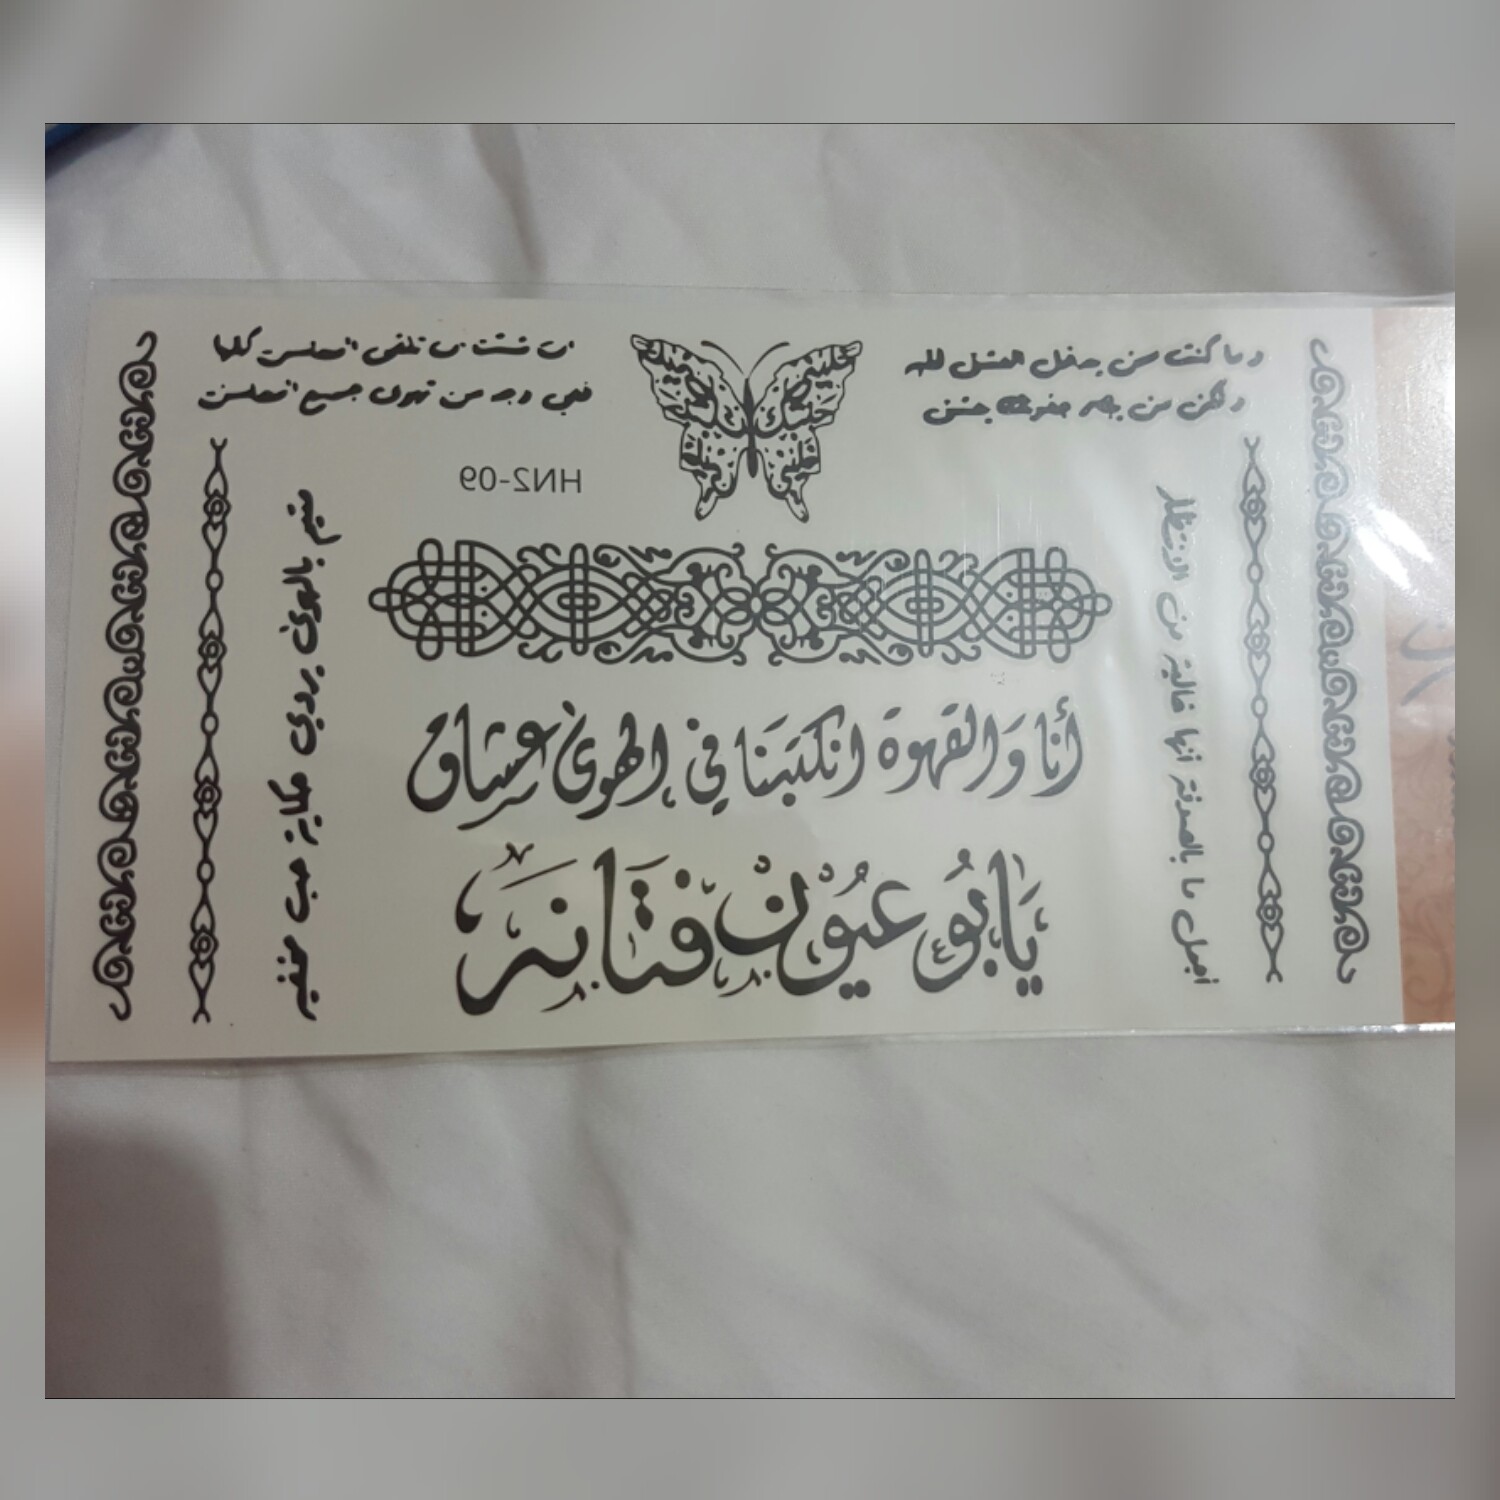 وما كنت من يدخل العشق قلبه
ولكن من يبصر جفونك يعشق
ان شئت ان تلقى المحاسن كلها
ففي وجه من تهوى جميع المحاسن
HN2-09
أجمل ما بالصدفة أنها خالية من الانتظار
متيم بالهوى
حكاية حب
أنا والقهوة انكتبنا في الهوى عشاق
يابو عيون فتانه